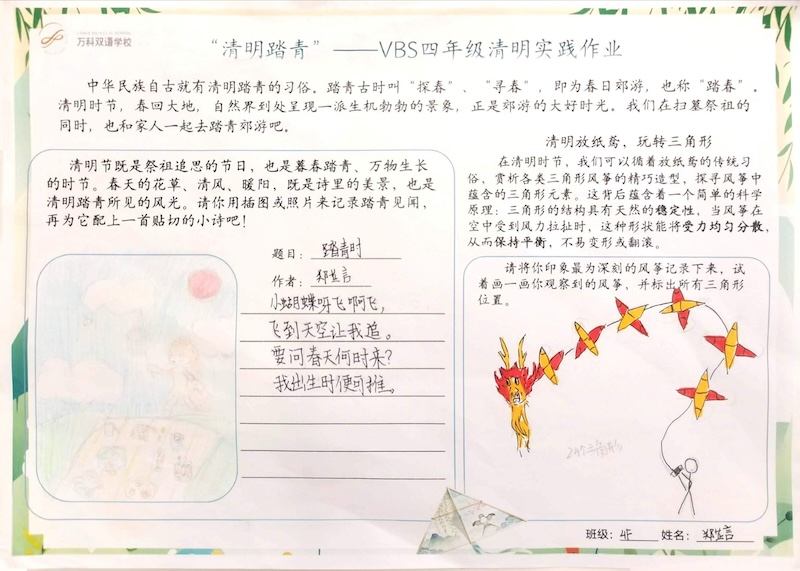 万科双语学校
“清明踏青”——VBS四年级清明实践作业
中华民族自古就有清明踏青的习俗。踏青古时叫“探春”、“寻春”，即为春日郊游，也称“踏春”。
清明时节，春回大地，自然界到处呈现一派生机勃勃的景象，正是郊游的大好时光。我们在扫墓祭祖的
同时，也和家人一起去踏青郊游吧。
清明节既是祭祖追思的节日，也是暮春踏青、万物生长
的时节。春天的花草、清风、暖阳，既是诗里的美景，也是
清明踏青所见的风光。请你用插图或照片来记录踏青见闻，
再为它配上一首贴切的小诗吧！
题目：踏青时
作者：郑芸言
小蝴蝶呀飞啊飞，
飞到天空让我追。
要问春天何时来？
我出生时便可推。
清明放纸鸢，玩转三角形
在清明时节，我们可以循着放纸鸢的传统习
俗，赏析各类三角形风筝的精巧造型，探寻风筝中
蕴含的三角形元素。这背后蕴含着一个简单的科学
原理：三角形的结构具有天然的稳定性，当风筝在
空中受到风力拉扯时，这种形状能将受力均匀分散，
从而保持平衡，不易变形或翻滚。
请将你印象最为深刻的风筝记录下来，试
着画一画你观察到的风筝，并标出所有三角形
位置。
24个三角形
班级：4F 姓名：郑芸言